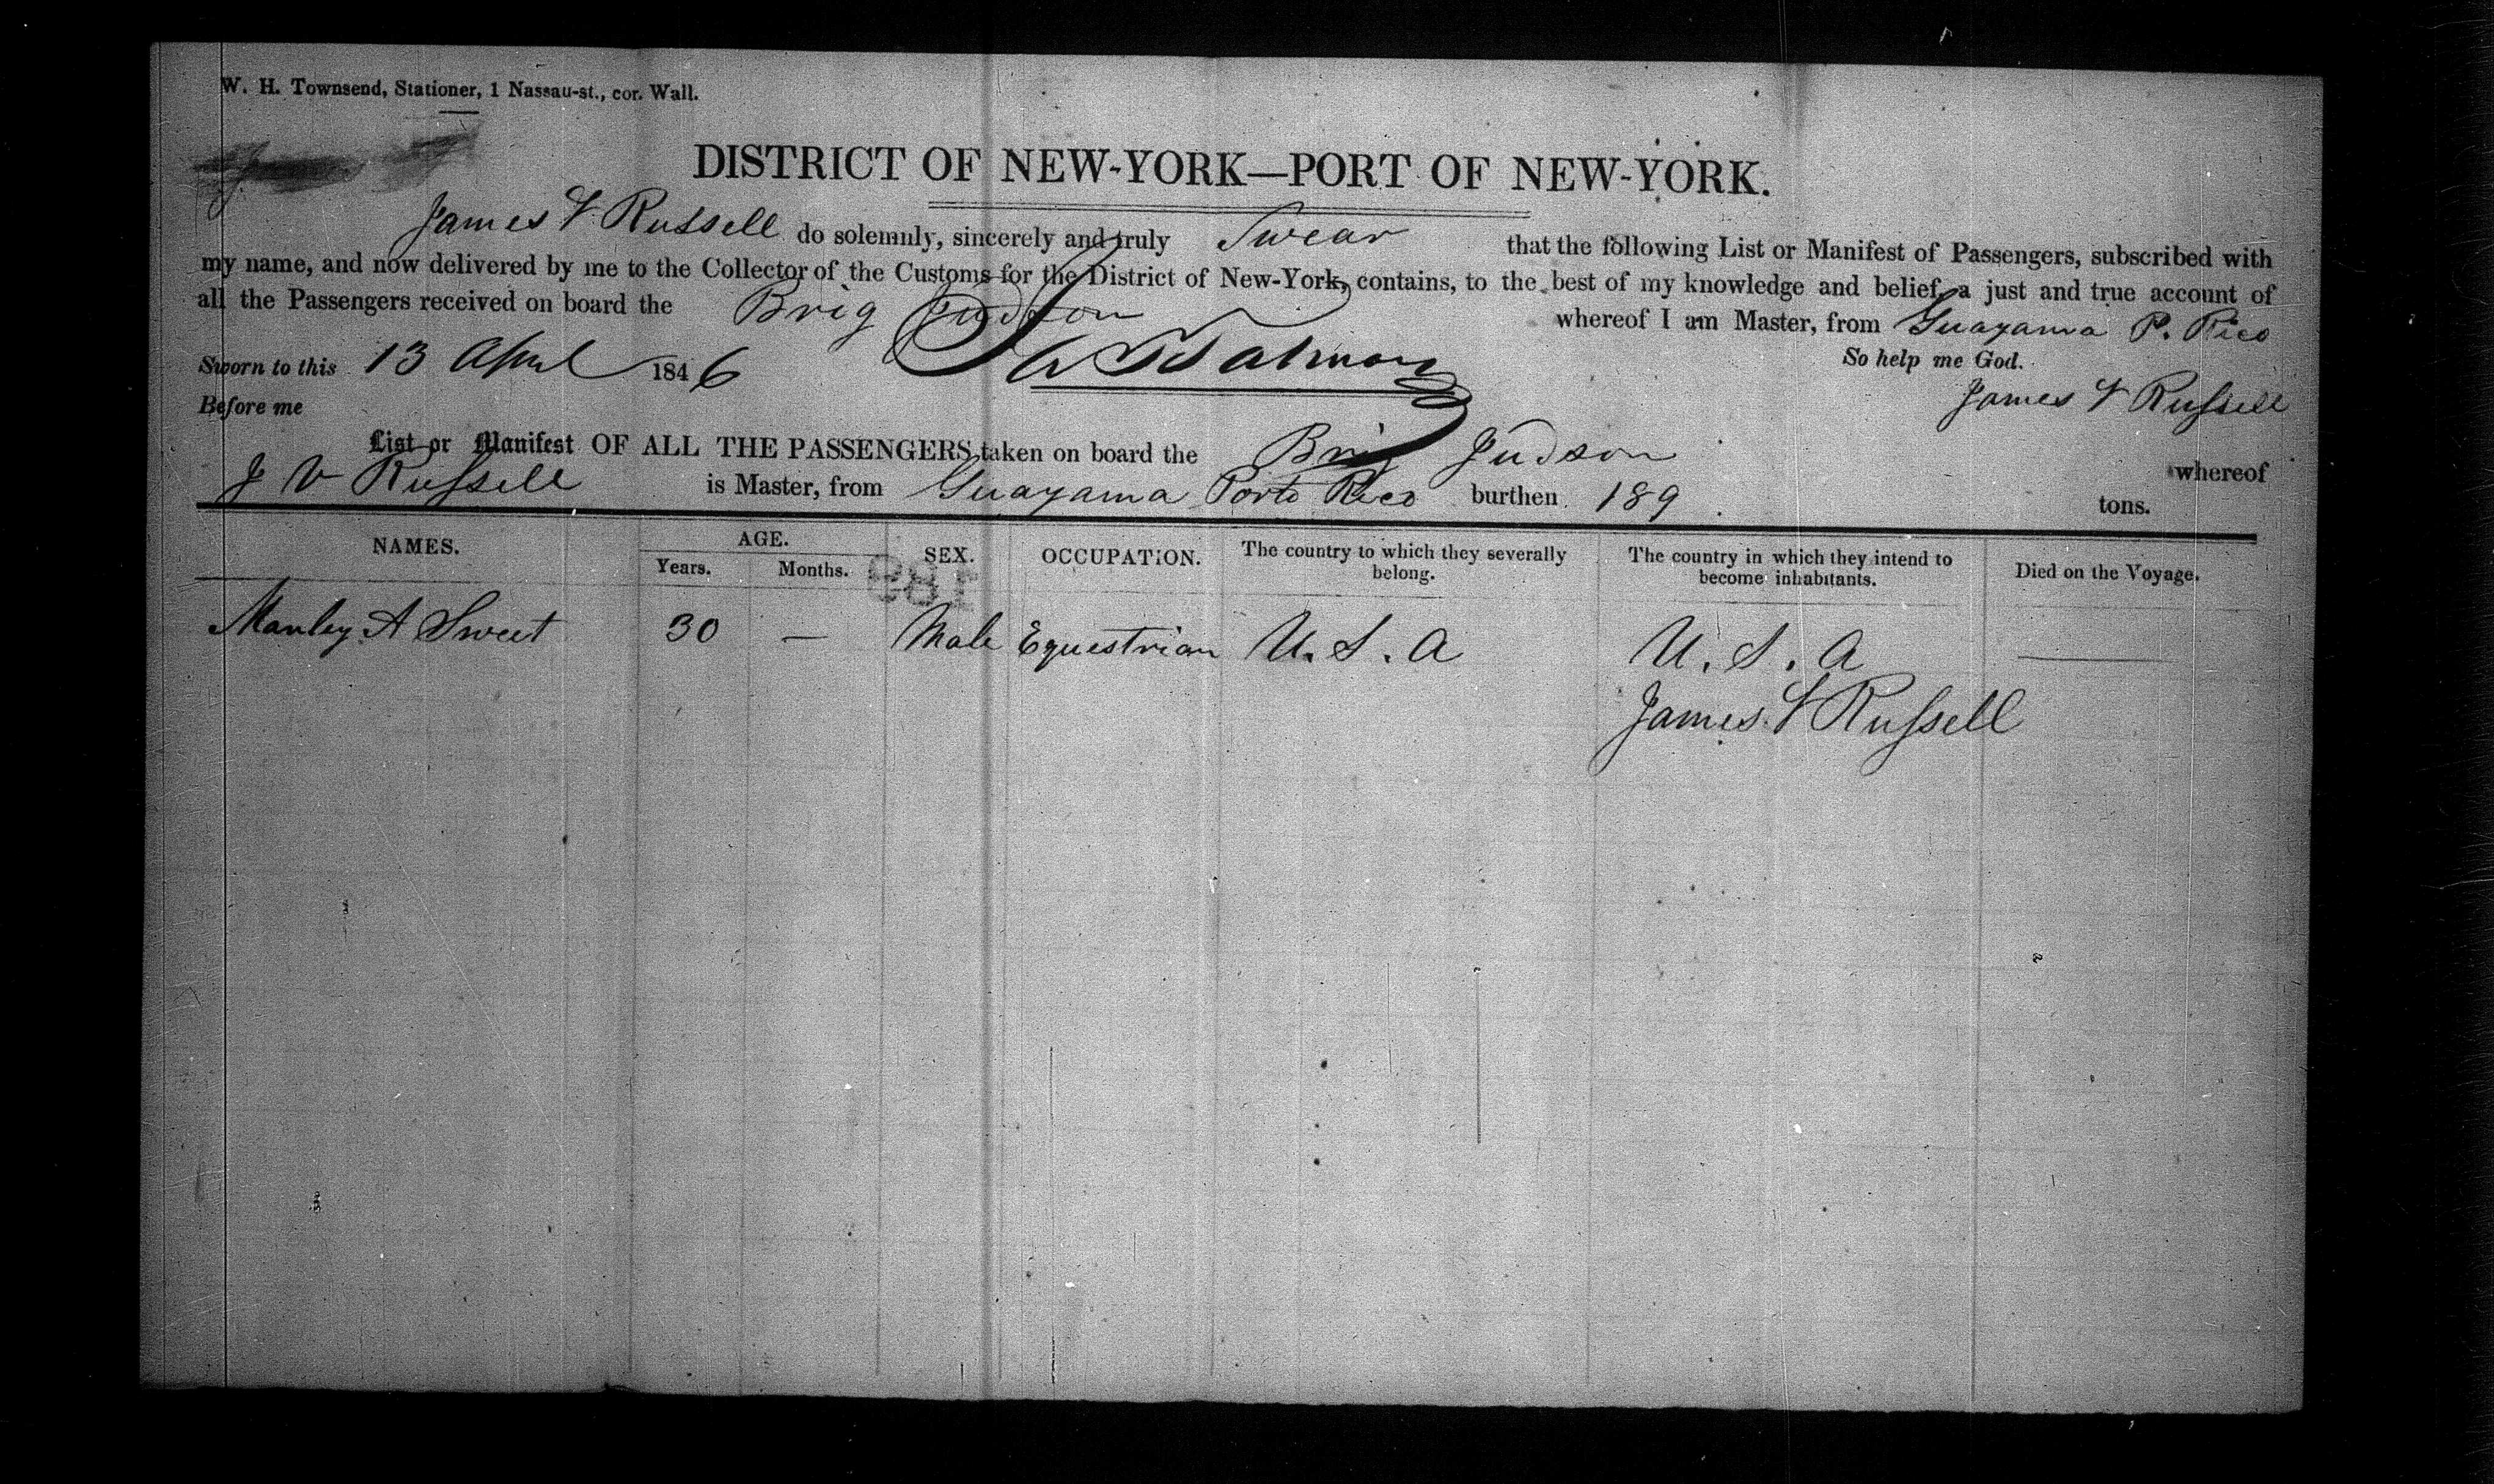 W. H. Townsend, Stationer, 1 Nassau-st., cor. Wall.
DISTRICT OF NEW-YORK—PORT OF NEW-YORK.
James V Russell do solemnly, sincerely and truly Swear that the following List or Manifest of Passengers, subscribed with
my name, and now delivered by me to the Collector of the Customs for the District of New-York, contains, to the best of my knowledge and belief, a just and true account of
all the Passengers received on board the Brig Judson whereof I am Master, from Guayama P. Rico
Sworn to this 13 April 1846 So help me God.
Before me James V Russell
List or Manifest OF ALL THE PASSENGERS taken on board the Brig Judson whereof
J V Russell is Master, from Guayama Porto Rico burthen 189 tons.
NAMES. AGE. SEX. OCCUPATION. The country to which they severally belong. The country in which they intend to become inhabitants. Died on the Voyage.
Years. Months.
189
Manley A Sweet 30 — Male Equestrian U. S. A U. S. A
James V Russell